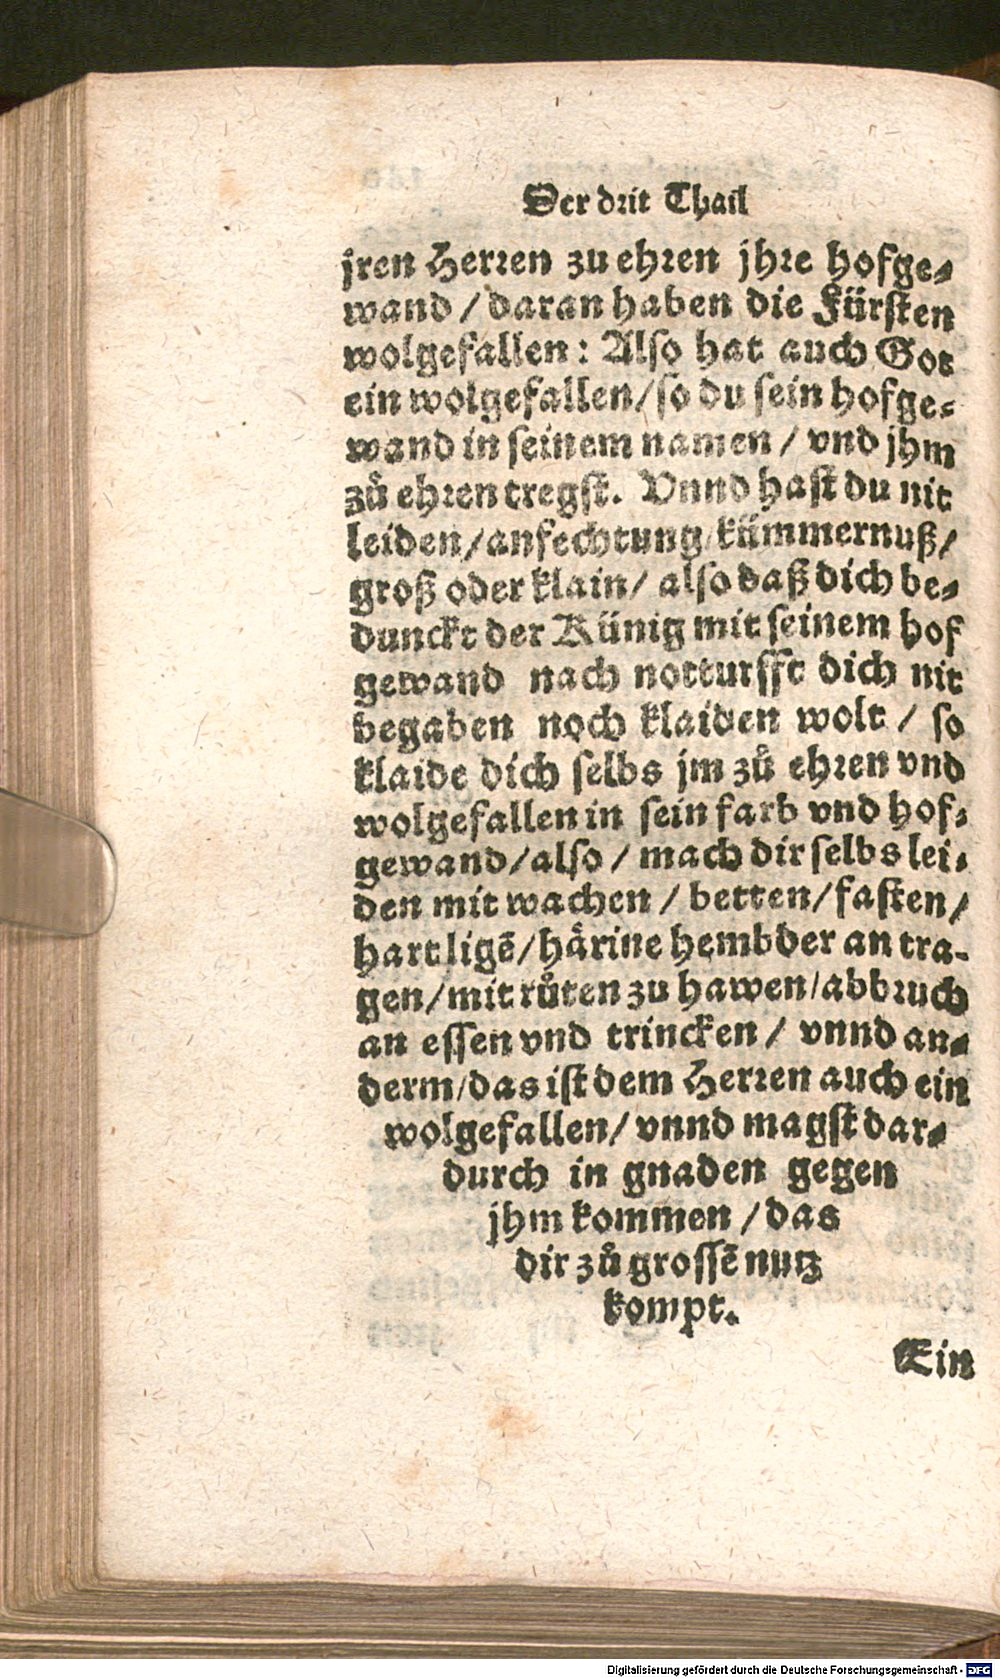 Der drit Thail
jren Herren zu ehren jhre hofge-
wand / daran haben die Fürsten
wolgefallen : Also hat auch Got
ein wolgefallen/so du sein hofge-
wand in seinem namen / vnd jhm
zů ehren tregst. Vnnd hast du nit
leiden/anfechtung/kümmernuß/
groß oder klain/ also daß dich be-
dunckt der Künig mit seinem hof
gewand nach notturfft dich nit
begaben noch klaiden wolt / so
klaide dich selbs jm zů ehren vnd
wolgefallen in sein farb vnd hof-
gewand/also / mach dir selbs lei-
den mit wachen / betten/fasten/
hart ligẽ/hårine hembder an tra-
gen/mit růten zu hawen/abbruch
an essen vnd trincken / vnnd an-
derm/das ist dem Herren auch ein
wolgefallen/ vnnd magst dar-
durch in gnaden gegen
jhm kommen / das
dir zů grossẽ nutz
kompt.
Ein
Digitalisierung gefördert durch die Deutsche Forschungsgemeinschaft - DFG